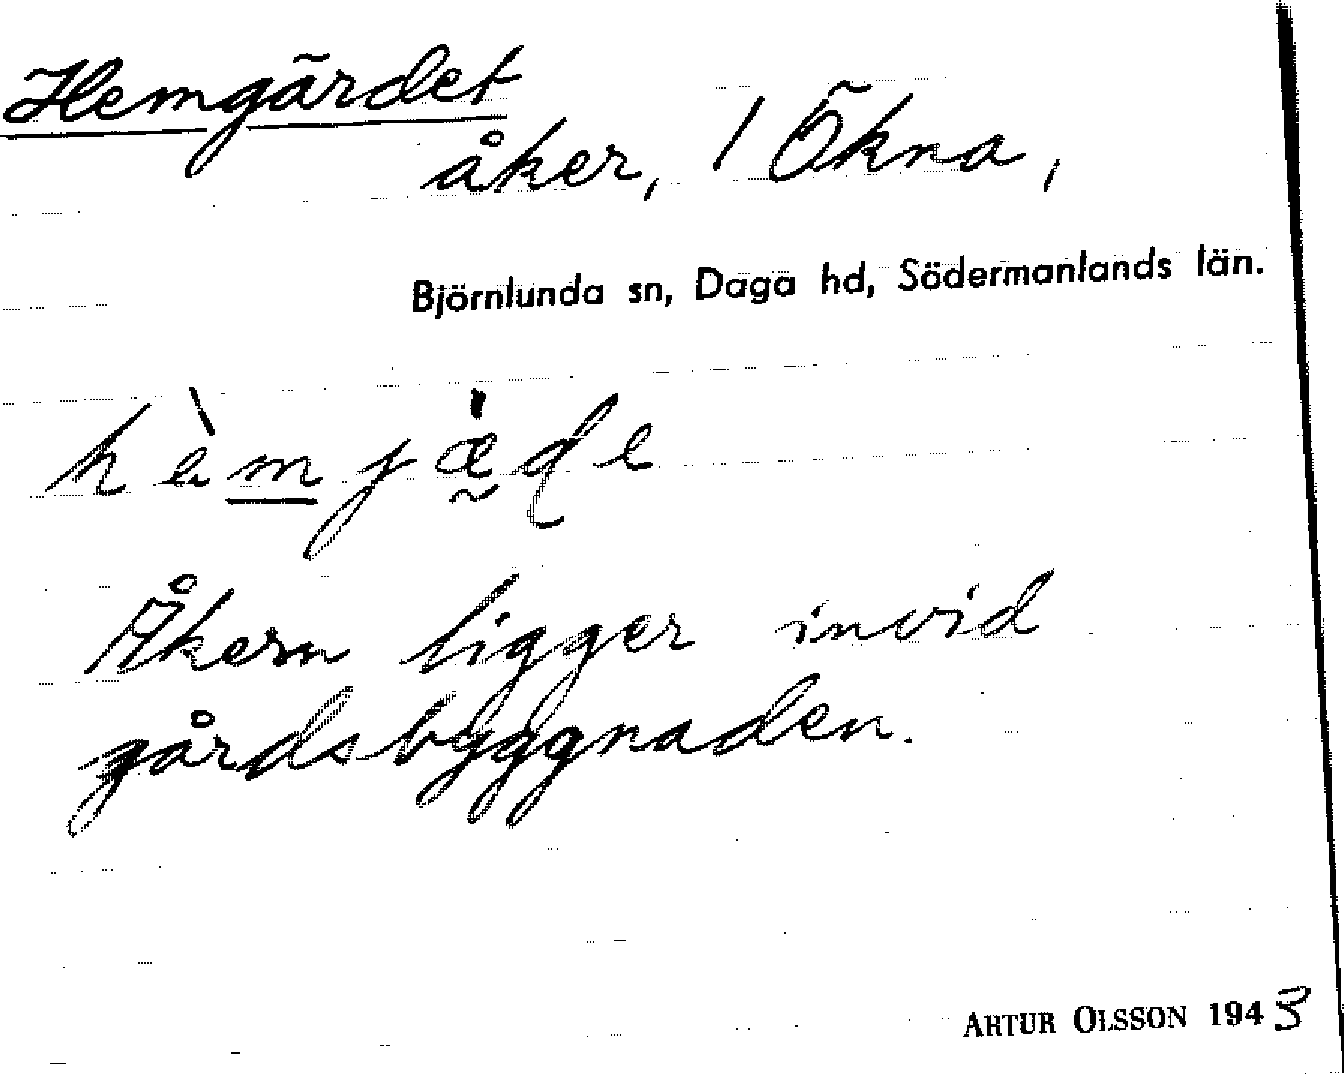 Hemgärdet
åker, 1 Ökna,
Björnlunda sn, Daga hd, Södermanlands län.
hèmjæ̰̍de
Åkern ligger invid
gårdsbyggnaden.
ARTUR OLSSON 1943